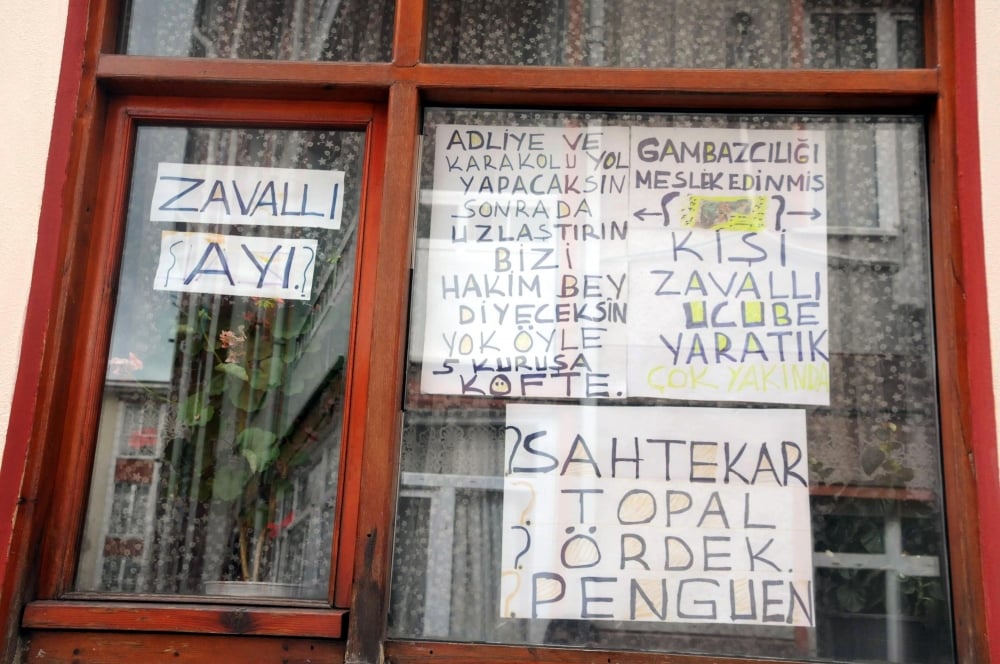 ZAVALLI
{AYI?
ADLİYE VE
KARAKOLU YOL
YAPACAKSIN
SONRADA
UZLAŞTIRIN
BİZİ
HAKİM BEY
DİYECEKSİN
YOK ÖYLE
5 KURUŞA
KÖFTE.
GAMBAZCILIĞI
MESLEK EDİNMİŞ
←{ ?→
KİŞİ
ZAVALLI
UCUBE
YARATIK
ÇOK YAKINDA
?SAHTEKAR
? TOPAL
? ÖRDEK.
? PENGUEN